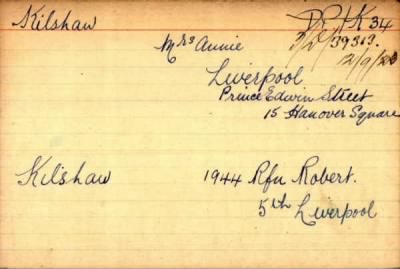 Kilshaw
K 34
Mrs Annie
2/9/20
Liverpool
Prince Edwin Street
15 Hanover Square
Kilshaw 1944 Rfn Robert.
5th Liverpool